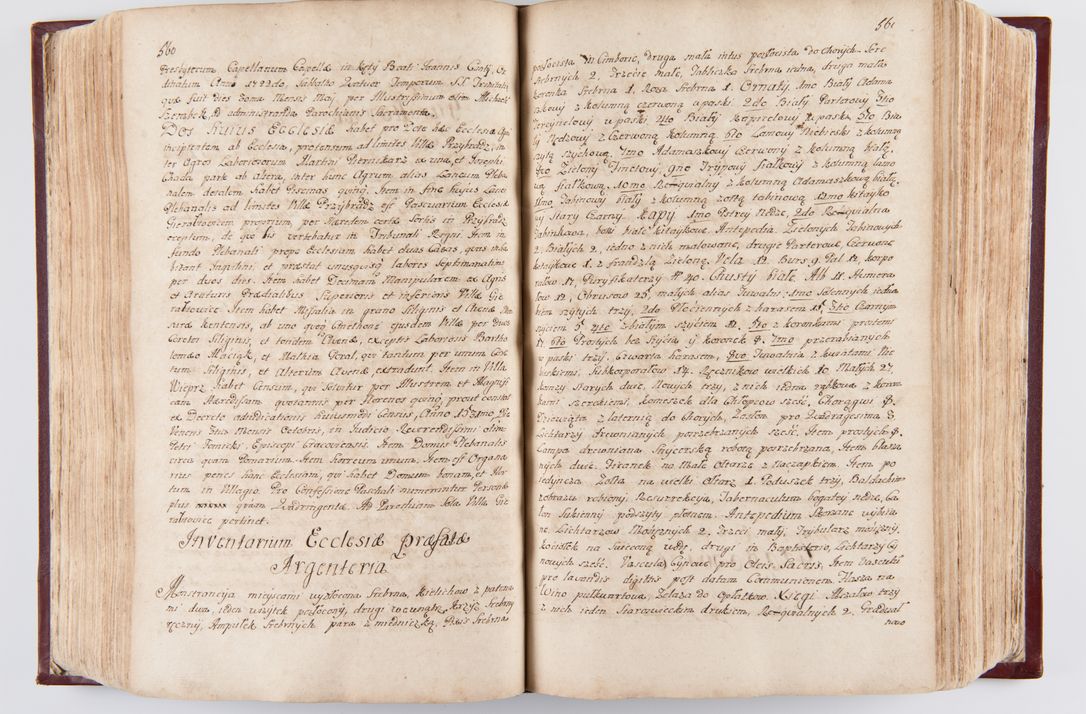 560
Presbyterum Capellanum Capellæ in Kęty Beati Joannis Cantij, Or
dinatum Anno 1722do, Sabbatho Quatuor Temporum SS. Trinitatis
quæ fuit dies 30ma Mensis Maij, per Illustrissimum olim Michaelē
Szembek, ad administranda Parochianis Sacramenta.
Dos Huius Ecclesiæ habet pro Dote hæc Ecclesia Agrū
incipientem ab Ecclesia, protensum ad limites Villæ Przybradz, in
ter Agros Laboriosorum Martini Bernikarz ex una, et Josephi
Chada parte ab altera, inter hunc Agrum alias Laneum Pleba
nalem detalem habet Piscinas quinq. Item in fine hujus Lanei
Plebanalis ad limites Villæ Przybradz est Pascuarium Ecclesiæ
Gierałtovicen proprium, per Hæredem certæ Sortis in Przybradz
ereptum, de quo lis vertebatur in Tribunali Regni. Item in
fundo Plebanali prope Ecclesiam habet duas Casas, quas inha
bitant Inquilini, et præstat unusquisq labores Septimanatim
per duos dies. Item habet Decimam Manipularem ex Agris
et Araturis Prædialibus Superioris et inferioris Villæ Gie
rałtowice. Item habet Missalia in grano Siliginis et Avenæ Men
suræ Kentensis, ab uno quoq Cmethone ejusdem Villæ per duos
Coretos Siliginis, et totidem Avenæ, exceptis Laborioso Bartho
lomæo Maciąk, et Mathia Geral, qui tantum per unum Core
tum Siliginis, et Alterum Avenæ extradunt. Item in Villa
Wieprz habet Censum, qui solvitur per Illustrem et Magnifi
cam Hæredissam quotannis per florenos quinq, prout constat
ex Decreto adjudicationis huiusmodi Census, Anno 1531mo Die
Veneris 3tia Mensis Octobris, in Judicio Reverendissimi olim
Petri Tomicki Episcopi Cracoviensis. Item Domus Plebanalis
circa quam Pomarium. Item Horreum unum. Item est Organa
rius penes hanc Ecclesiam, qui habet Domum bonam, et Hor
tum in Villagio. Pro Confessione Paschali numerantur Personæ
plus quam Quadringentæ. Ad Parochiam sola Villa Gie
rałtowice pertinet.
Inventarium Ecclesiæ præfatæ
Argenteria
Monstrancja miejscami wyzłocona Srebrna, Kielichow z patena
mi dwa, ieden wszystek pozłocony, drugi zewnątrz, Krzyż Srebrny
ręczny, Ampułek Srebrnych para z miedniczką, Puszka Srebrna
561
pozłocista in Ciborio, druga mała intus pozłocista do Chorych. Serc
Srebrnych 2. Trzecie małe, Tabliczka Srebrna iedna, druga mała
Koronka Srebrna 1. Rosa Srebrna 1. Ornaty. 1mo Biały Adama
szkowy z kolumną czerwoną w paski 2do Biały Parterowy 3tio
w paski 4to Biały w paski, 5to Bia
ły Nedzowy z Czerwoną Kolumną. 6to Lamowy Niebieski z kolumną
szytą Szychową. 7mo Adamaszkowy Czerwony z kolumną białą.
8vo Zielony 9no Trypowy fiałkowy z kolumną lamo
wą fiałkową. 10mo Requialny z kolumną Adamaszkową białą.
11mo Tabinowy biały z kolumną żołtą tabinową 12mo kitayko
wy Stary Czarny. Kapy 1mo Pstrey Nedze, 2do Requialna
Tabinkowa, boki białe kitaykowe. Antepedia Zielonych Tabinowych
2. Białych 2. iedno z nich malowane, drugie Parterowe, Czerwone
kitaykowe 1. z frandzlą Zieloną. Vela 12. Burs 9. Pal 12. Korpo
rałow 17. Puryfikaterzy 40. Chusty białe Alb 11. Humera
łow 12, Obrusow 25, małych alias Tuwalni: 1mo Solennych iedna
kiem szytych trzy, 2do Płociennych z harasem 15, 3tio Czarnym
szyciem 3. 4to z białym szyciem 11. 5to z koronkami prostemi
17. 6to Prostych bez Szycia y koronek 8. 7mo przerabianych
w paski trzy. Czwarta harasem, 8vo Tuwalnia z kwiatami Nie
bieskiemi. Subkorporałow 14. Ręcznikow wielkich 10. Małych 27.
Komży Starych dwie, Nowych trzy, z nich iedna rąbkowa z koron
kami Szerokiemi, Komeszek dla Chłopcow sześć. Chorągwi 8.
Dzwonek z laternią do Chorych, Zasłon pro Quadragesima 3
Lichtarzy drewnianych posrebrzanych sześć. Item prostych 8.
Lampa drewniana Snycerską robotą posrebrzana. Item blasza
nych dwie. Firanek na Małe Ołtarze z Naczapkiem. Item po
iedyncza Zołta na wielki Ołtarz 1. Poduszek trzy, Baldachim
zobrazu robiony Resurrekcja, Tabernaculum bogatey nedze, Ca
łun Sukienny podszyty płotnem. Antepedium Skorzane wybija
ne. Lichtarzow Mosięznych 2. Trzeci mały, Trybularz mosięzny.
Kociołek na Swieconą wodę, drugi in Baptisterio, Lichtarzy Cy
nowych sześć. Vascula Cynowe pro Oleis Sacris, Item Vasculū
pro lavandis digitis post datam Communionem. Flasza na
Wino pułkwartowa, Zelaza do Opłatkow. Xsięgi Mszałow trzy
z nich ieden Starowieckim drukiem, Requialnych 2. Graduał
nowo